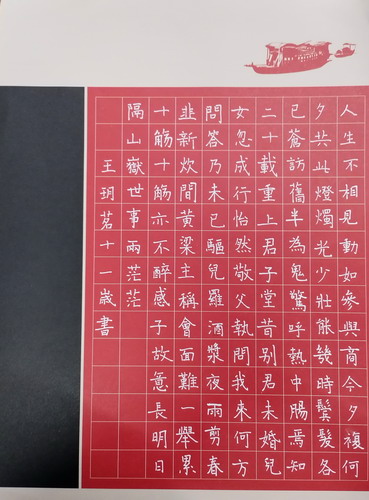 人生不相見動如參與商今夕複何
夕共此燈燭光少壯能幾時鬢髮各
已蒼訪舊半為鬼驚呼熱中腸焉知
二十載重上君子堂昔别君未婚兒
女忽成行怡然敬父執問我來何方
問答乃未已驅兒羅酒漿夜雨剪春
韭新炊間黄梁主稱會面難一舉累
十觴十觴亦不醉感子故意長明日
隔山嶽世事兩茫茫
王玥茗十一歲書